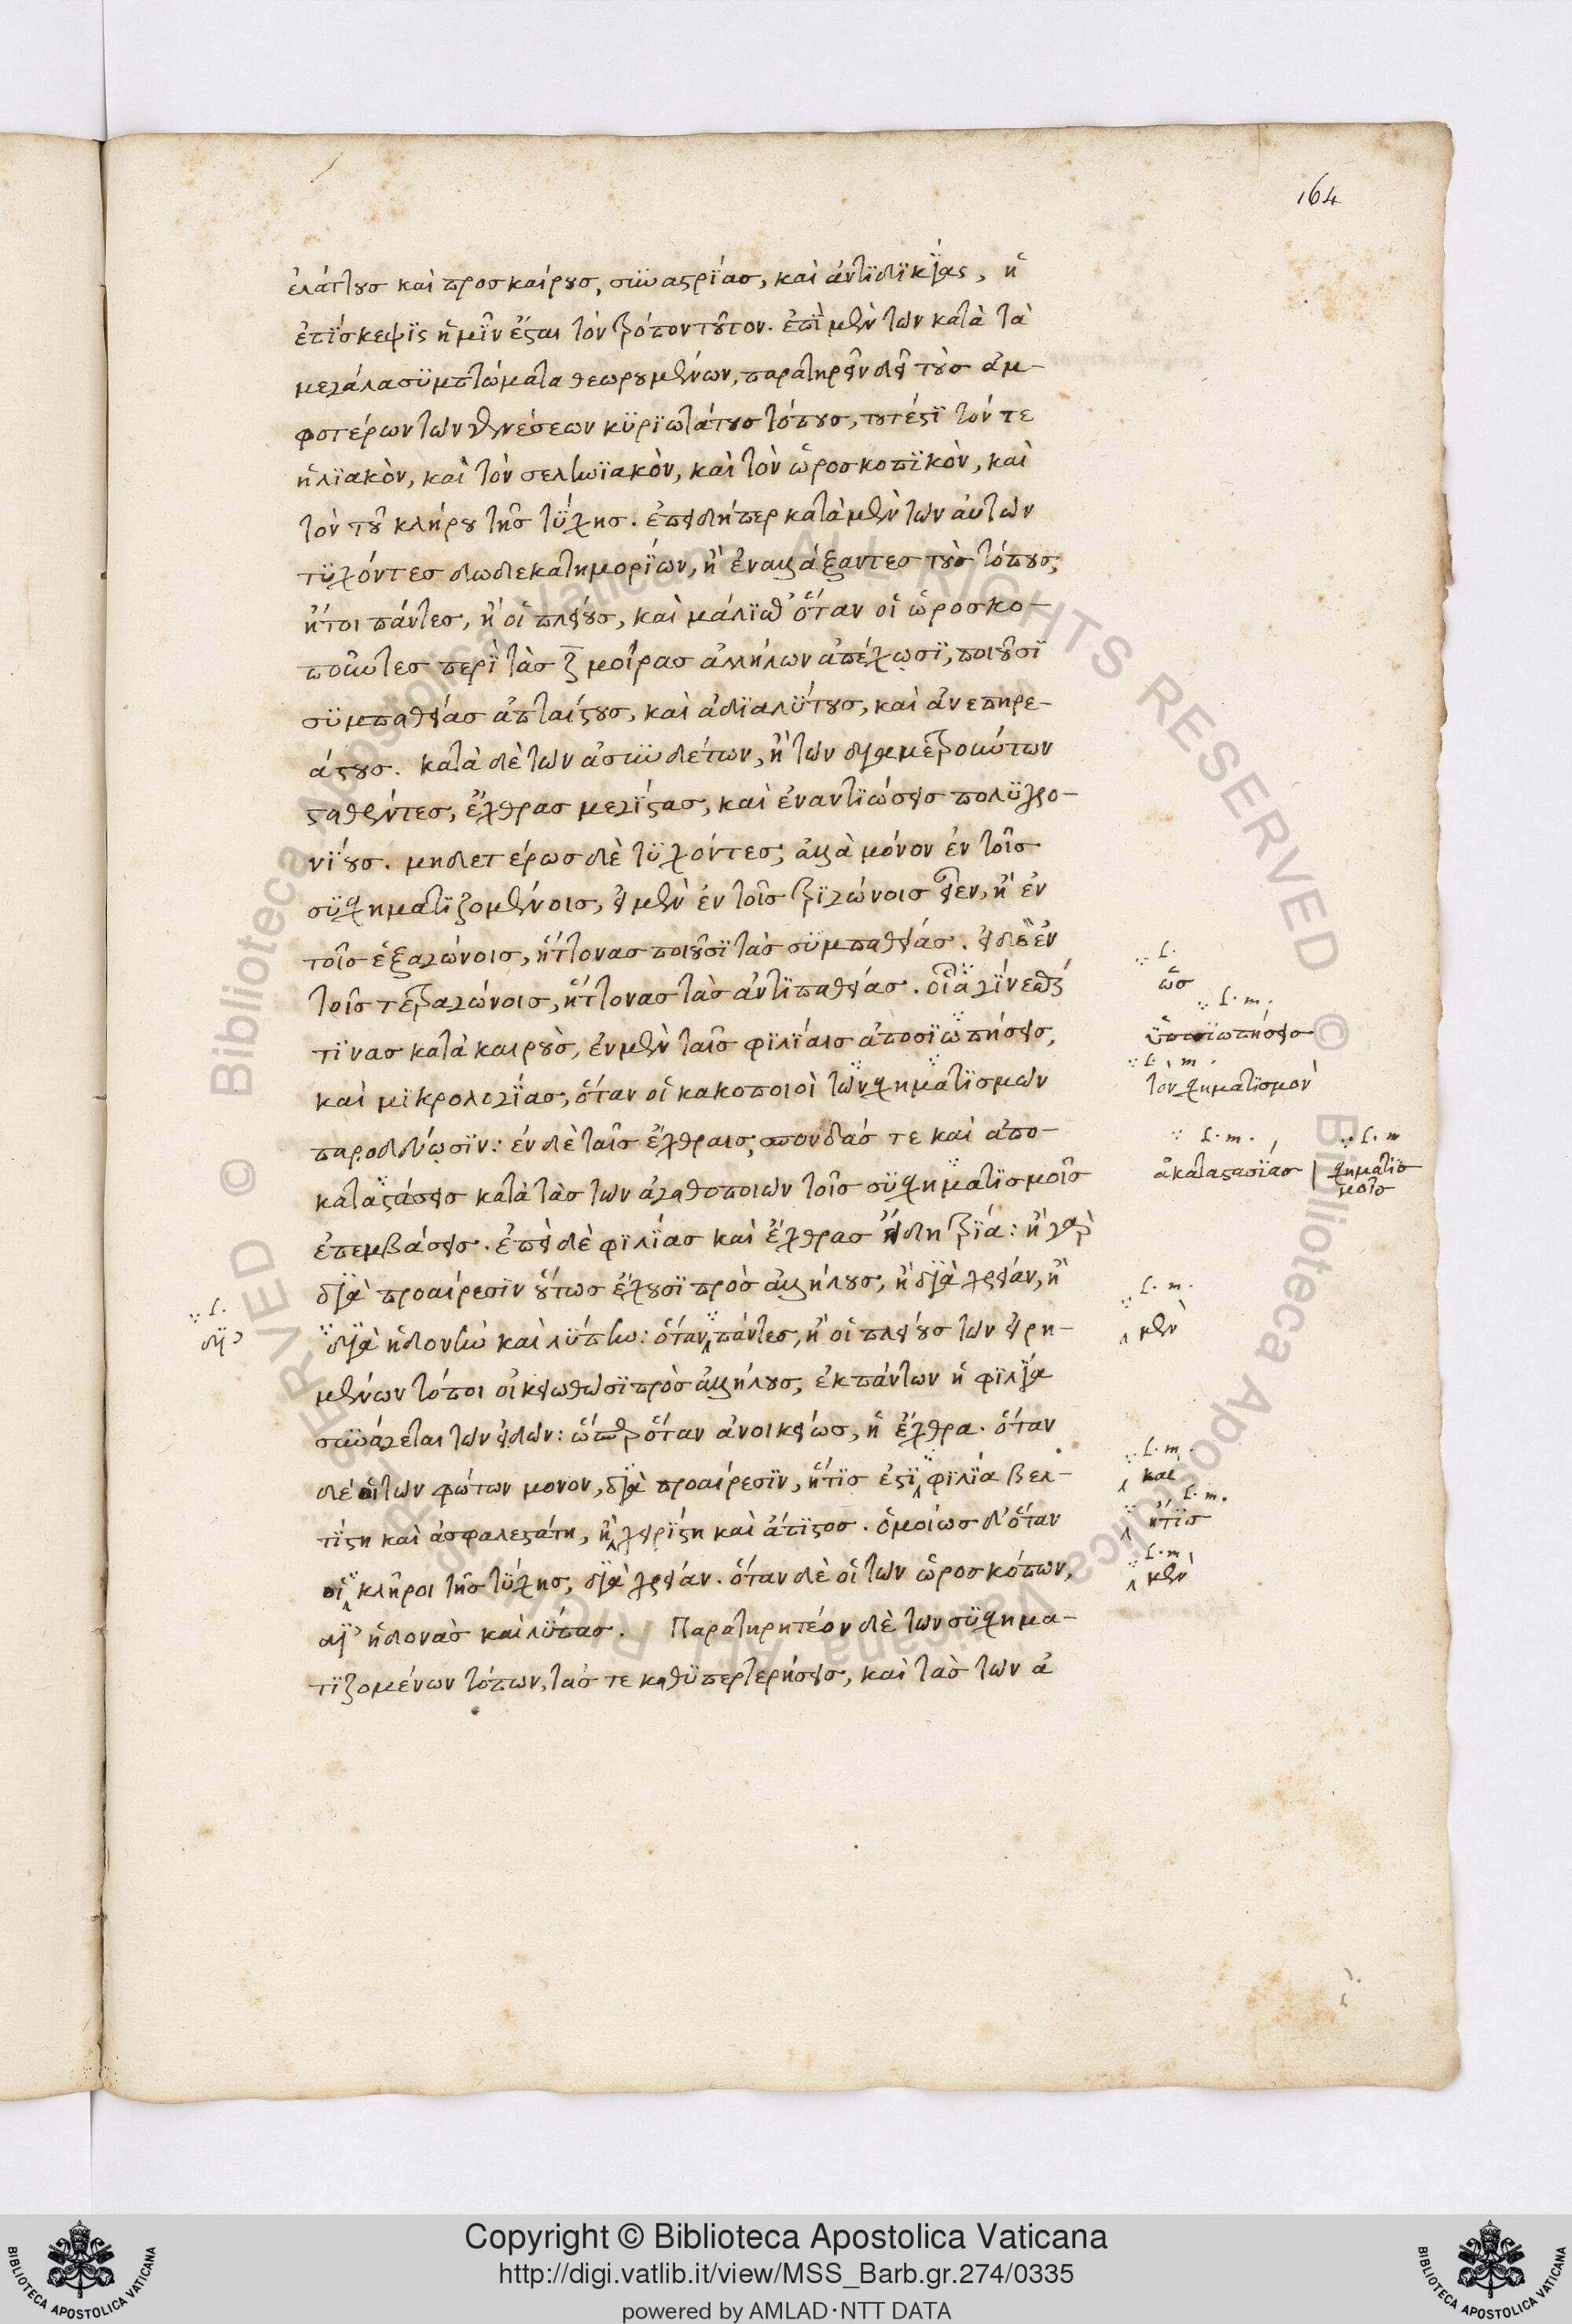 164
ἐλάττους καὶ προσκαίρους, συναστρίας, καὶ ἀντιδικίας, ἡ
ἐπίσκεψις ἡμῖν ἔσται τὸν τρόπον τοῦτον. ἐπὶ μὲν τῶν κατὰ τὰ
μεγάλα συμπτώματα θεωρουμένων, παρατηρεῖν δεῖ τοὺς ἀμ-
φοτέρων τῶν γενέσεων κυριωτάτους τόπους, τουτέστι τόν τε
ἡλιακὸν, καὶ τὸν σεληνιακὸν, καὶ τὸν ὡροσκοπικὸν, καὶ
τὸν τοῦ κλήρου τῆς τύχης. ἐπειδήπερ κατὰ μὲν τῶν αὐτῶν
τυχόντες δωδεκατημορίων, ἢ ἐναλλάξαντες τοὺς τόπους,
ἤτοι πάντες, ἢ οἱ πλείους, καὶ μάλισθ' ὅταν οἱ ὡροσκο-
ποῦντες περὶ τὰς ιζ μοίρας ἀλλήλων ἀπέχωσι, ποιοῦσι
συμπαθείας ἀπταίστους, καὶ ἀδιαλύτους, καὶ ἀνεπηρε-
άστους. κατὰ δὲ τῶν ἀσυνδέτων, ἢ τῶν διαμετρούντων
σταθέντες, ἔχθρας μεγίστας, καὶ ἐναντιώσεις πολυχρο-
νίους. μηδετέρως δὲ τυχόντες, ἀλλὰ μόνον ἐν τοῖς
συσχηματιζομένοις, εἰ μὲν ἐν τοῖς τριγώνοις εἶεν, ἢ ἐν
τοῖς ἑξαγώνοις, ἥττονας ποιοῦσι τὰς συμπαθείας. εἰ δὲ ἐν
τοῖς τετραγώνοις, ἥττονας τὰς ἀντιπαθείας. οἷα γίνεσθαί
τινας κατὰ καιροὺς, ἐν μὲν ταῖς φιλίαις ἀποσιωπήσεις,
καὶ μικρολογίας, ὅταν οἱ κακοποιοὶ τῶν σχηματισμῶν
παροδεύωσιν: ἐν δὲ ταῖς ἔχθραις, σπονδάς τε καὶ ἀπο-
καταστάσεις κατὰ τὰς τῶν ἀγαθοποιῶν τοῖς συσχηματισμοῖς
ἐπεμβάσεις. ἐπεὶ δὲ φιλίας καὶ ἔχθρας εἴδη τρία: ἢ γὰρ
διὰ προαίρεσιν οὕτως ἔχουσι πρὸς ἀλλήλους, ἢ διὰ χρείαν, ἢ
διὰ ἡδονὴν καὶ λύπην: ὅταν πάντες, ἢ οἱ πλείους τῶν εἰρη-
μένων τόποι οἰκειωθῶσι πρὸς ἀλλήλους, ἐκ πάντων ἡ φιλία
συνάγεται τῶν εἰδῶν: ὥσπερ ὅταν ἀνοικείως, ἡ ἔχθρα. ὅταν
δὲ οἱ τῶν φώτων μονον, διὰ προαίρεσιν, ἥτις ἐστὶ φιλία βελ-
τίστη καὶ ἀσφαλεστάτη, ἢ χειρίστη καὶ ἄπιστος. ὁμοίως δ' ὅταν
οἱ κλῆροι τῆς τύχης, διὰ χρείαν. ὅταν δὲ οἱ τῶν ὡροσκόπων,
δι' ἡδονὰς καὶ λύπας. Παρατηρητέον δὲ τῶν συσχημα-
τιζομένων τόπων, τάς τε καθυπερτερήσεις, καὶ τὰς τῶν ἀ
f.
ὡς
f. m.
ὑποσιωπήσεις
f. m.
τὸν σχηματισμὸν
f. m.
ἀκαταστασίας
f. m
σχηματισ
μοῖς
f.
δι'
f. m.
μὲν
f. m.
καὶ
f. m.
ἥτις
f. m
μὲν
Copyright © Biblioteca Apostolica Vaticana
http://digi.vatlib.it/view/MSS_Barb.gr.274/0335
powered by AMLAD·NTT DATA